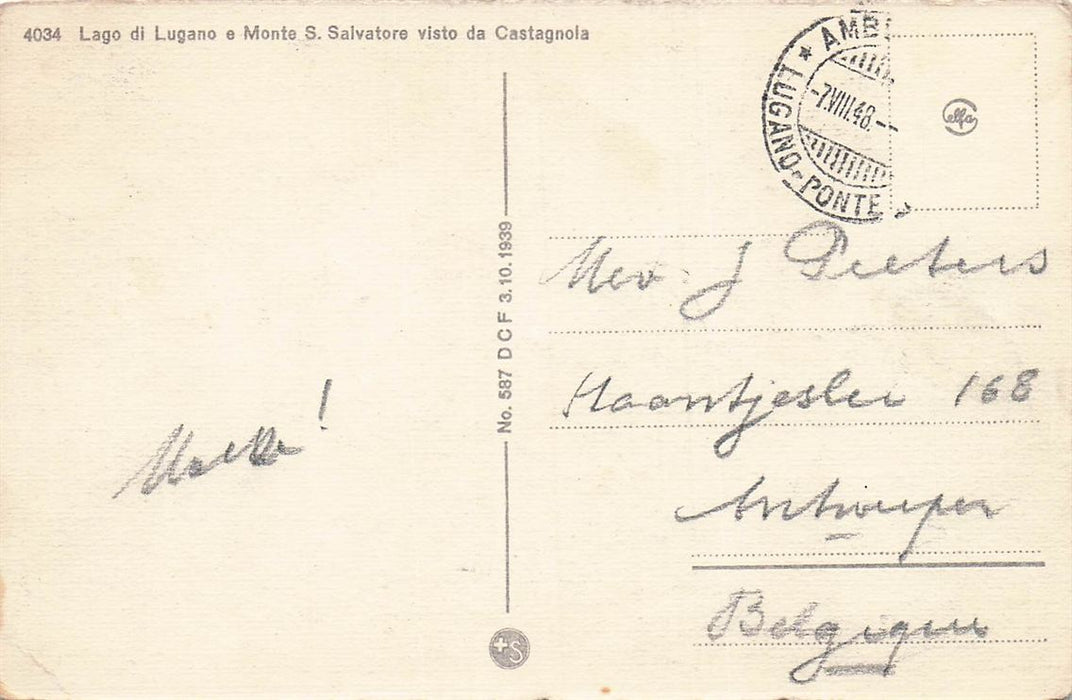 4034 Lago di Lugano e Monte S. Salvatore visto da Castagnola
AMB
LUGANO-PONTE
-7.VIII.48.--
elfa
No. 587 D C F 3.10.1939
Mev. J Peeters
Haantjeslei 168
Antwerpen
Belgique
+S